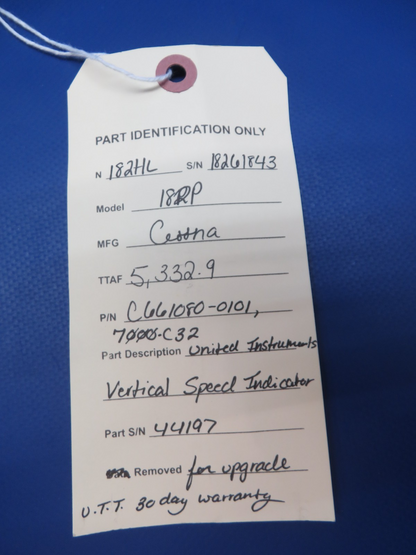 PART IDENTIFICATION ONLY
N 182HL S/N 18261843
Model 182P
MFG Cessna
TTAF 5,332.9
P/N C661080-0101,
7000-C32
Part Description United Instruments
Vertical Speed Indicator
Part S/N 44197
Removed for upgrade
U.T.T. 30 day warranty